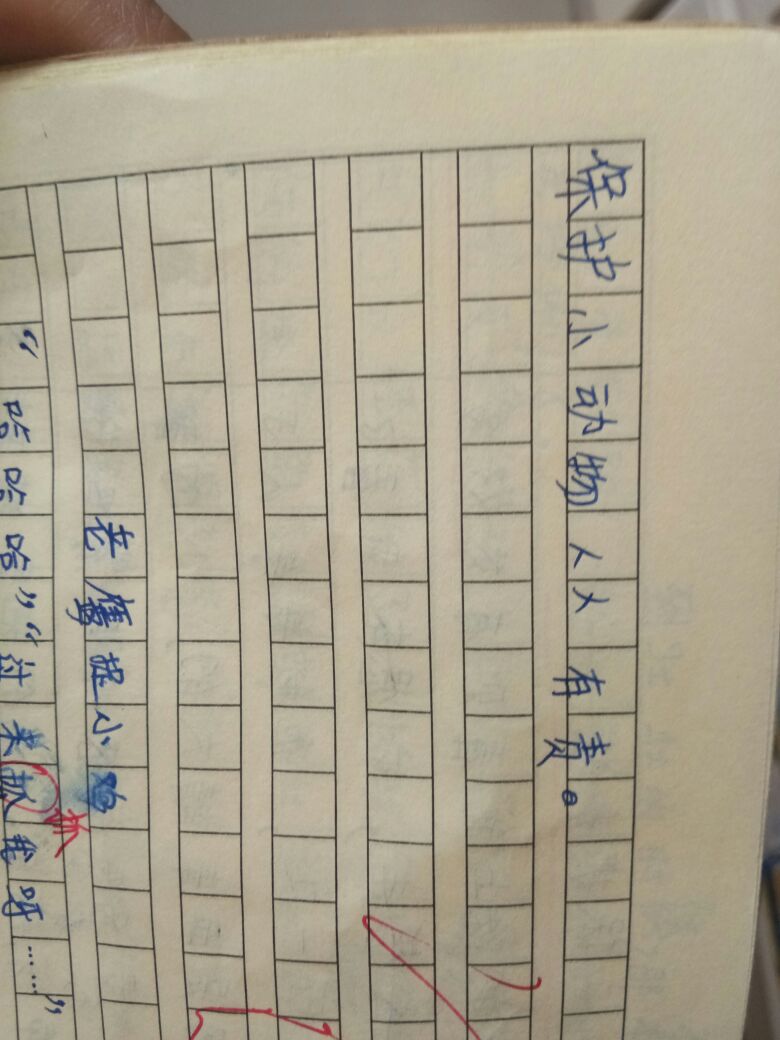 保护小动物人人有责。
老鹰捉小鸡
“哈哈哈”“过来抓我呀……”
抓